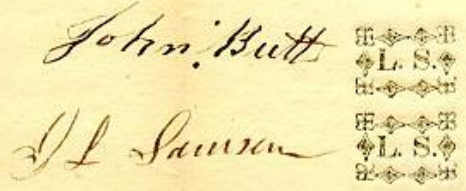 John Butt L. S.
D L Samson L. S.